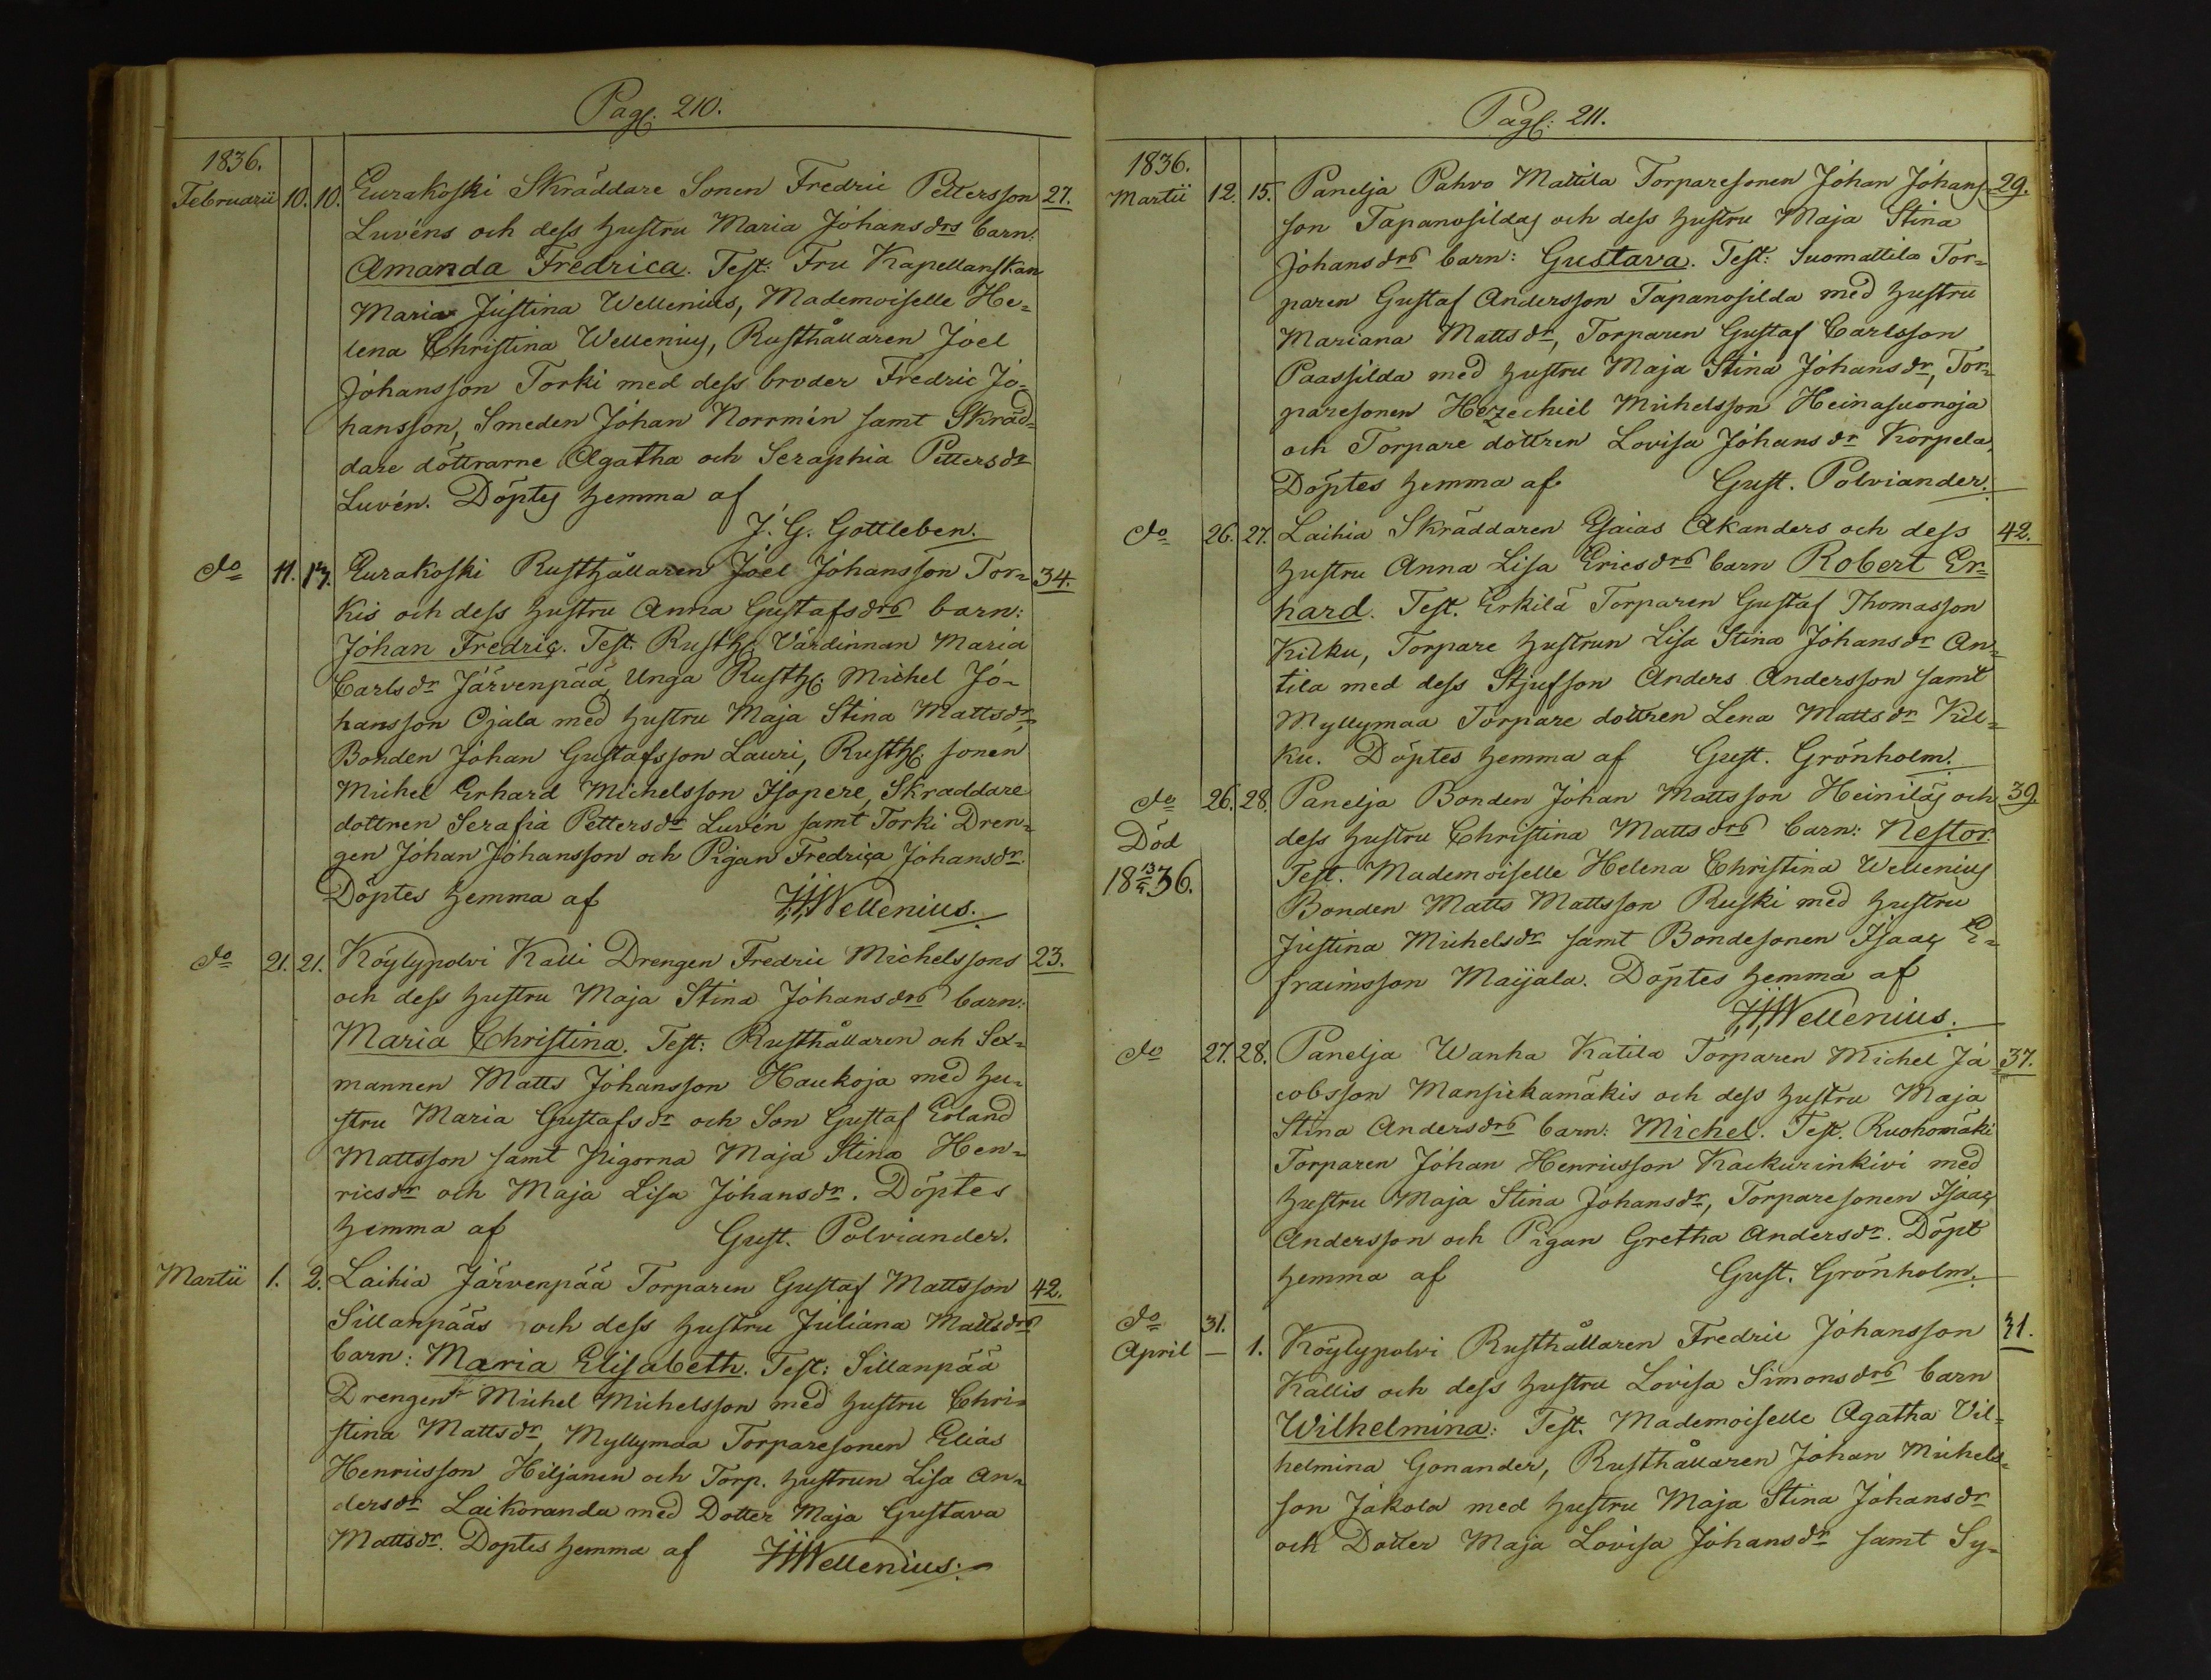 Pag: 210.
1836.
Februarii 10. 10. Eurakoski Skräddare Sonen Fredric Pettersson 27.
Luvéns och dess hustru Maria Johansdrs barn:
Amanda Fredrica. Test: Fru Kapellanskan
Maria Justina Wellenius, Mademoiselle He=
lena Christina Wellenius, Rusthållaren Joel
Johansson Torki med dess broder Fredric Jo=
hansson, Smeden Johan Norrmén samt Skräd=
dare döttrarne Agatha och Seraphia Pettersdr
Luvén. Döptes hemma af
J. G. Gottleben.
do 11. 13. Eurakoski Rusthållaren Joel Johansson Tor= 34.
kis och dess hustru Anna Gustafsdrs barn:
Johan Fredric. Test. Rusth: Värdinnan Maria
Carlsdr Järvenpää, Unga Rusth: Michel Jo=
hansson Ojala med hustru Maja Stina Mattsdr,
Bonden Johan Gustafsson Lauri, Rusth: sonen
Michel Erhard Michelsson Isopere, Skraddare
dottren Serafia Pettersdr Luvén samt Torki Dren=
gen Johan Johansson och Pigan Fredrica Johansdr.
Döptes hemma af J.H.Wellenius.
do 21. 21. Köylypolvi Kalli Drengen Fredric Michelssons 23.
och dess hustru Maja Stina Johansdrs barn:
Maria Christina. Test: Rusthållaren och Sex=
mannen Matts Johansson Haukoja med hu=
stru Maria Gustafsdr och Son Gustaf Erland
Mattsson samt Pigorna Maja Stina Hen=
ricsdr och Maja Lisa Johansdr. Döptes
hemma af Gust. Polviander.
Martii 1. 2. Laihia Järvenpää Torparen Gustaf Mattsson 42.
Sillanpääs och dess hustru Juliana Mattsdrs
barn: Maria Elisabeth. Test: Sillanpää
Drengen Michel Michelsson med hustru Chri=
stina Mattsdr, Myllymaa Torparesonen Elias
Henricsson Hiljanen och Torp. hustrun Lisa An=
dersdr Laikoranda med Dotter Maja Gustava
Mattsdr. Doptes hemma af J.H.Wellenius.
Pag: 211.
1836.
Martii 12. 15. Panelja Pahvo Mattila Torparesonen Johan Johans= 29.
son Tapanosildas och dess hustru Maja Stina
Johansdrs barn: Gustava. Test: Suomattila Tor=
paren Gustaf Andersson Tapanosilda med hustru
Mariana Mattsdr, Torparen Gustaf Carlsson
Paassilda med hustru Maja Stina Johansdr, Tor=
paresonen Hezechiel Michelsson Heinasuonoja
och Torpare döttren Lovisa Johansdr Korpela,
Döptes hemma af Gust. Polviander.
do 26. 27. Laihia Skräddaren Esaias Akanders och dess 42.
hustru Anna Lisa Ericsdrs barn Robert Er=
hard. Test. Erkilä Torparen Gustaf Thomasson
Kilku, Torpare hustrun Lisa Stina Johansdr An=
tila med dess Stjufson Anders Andersson samt
Myllymaa Torpare döttren Lena Mattsdr Kil=
ku. Döptes hemma af Gust. Grönholm.
do 26. 28. Panelja Bonden Johan Mattsson Heiniläs och 39.
Död dess hustru Christina Mattsdrs barn: Nestor.
18 13/4 36. Test. Mademoiselle Helena Christina Wellenius
Bonden Matts Mattsson Ruski med hustru
Justina Michelsdr samt Bondesonen Isaac E=
fraimsson Maijala. Döptes hemma af
J.H.Wellenius.
do 27. 28. Panelja Wanha Katila Torparen Michel Ja 37.
cobsson Mansikamäkis och dess hustru Maja
Stina Andersdrs barn: Michel. Test. Ruohomäki
Torparen Johan Henricsson Kaukurinkivi med
hustru Maja Stina Johansdr, Torparesonen Isaac
Andersson och Pigan Gretha Andersdr. Döpt
hemma af Gust. Grönholm.
do 31.
April — 1. Köylypolvi Rusthållaren Fredric Johansson 31.
Kallis och dess hustru Lovisa Simonsdrs barn
Wilhelmina: Test. Mademoiselle Agatha Vil=
helmina Gonander, Rusthållaren Johan Michels=
son Jakola med hustru Maja Stina Johansdr
och Dotter Maja Lovisa Johansdr samt Sy=